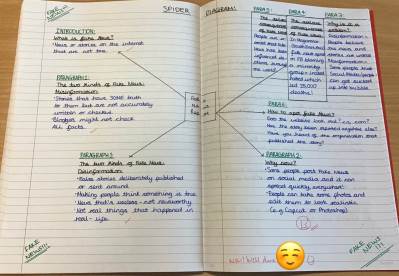 FAKE NEWS!!!
SPIDER DIAGRAM:
INTRODUCTION:
What is fake News?
• News or stories on the internet
that are not true.
PARAGRAPH 1:
The two kinds of Fake News:
Misinformation:
• Stories that have SOME truth
to them but are not accurately
written or checked.
• Bloggers might not check
all facts.
PARAGRAPH 2:
The two kinds of Fake News:
Disinformation:
• False stories deliberately published
or sent around
• Making people think something is true
• News that's useless - not newsworthy
• Not real things that happened in
real-life.
FAKE NEWS!!!
PARA 5:
The
consequences
of Fake
People
PARA 6:
The serious
consequences
of Fake News
fake news spread
on FB blaming
a minority
group
led
deaths!
PARA 7:
Why is it a
problem?
Disinformation -
People believe
the news and
stories
Misinformation -
Some people trust
Social Media/people
can get sucked
up into bubble
PARA 4:
How to spot fake News?
Does the website look real? e.g. .com?
Has the story been reported anywhere else?
Have you heard of the organisation that
published the story?
PARAGRAPH 3:
Why now?
• Some people post fake news
on social media and it can
spread quickly everywhere!
• People can take some photos and
edit them to look realistic
(e.g. or Photoshop)
Well done
FAKE NEWS!!!